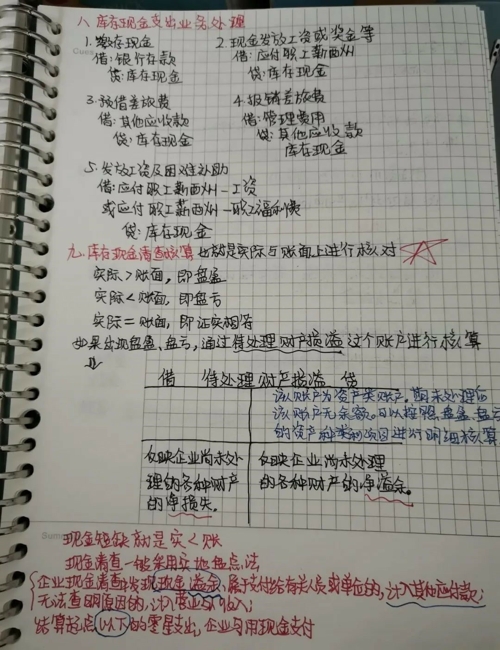 八、库存现金支出业务处理
1.缴存现金
借:银行存款
贷:库存现金
2.现金发放工资或奖金等
借:应付职工薪酬
贷:库存现金
3.预借差旅费
借:其他应收款
贷:库存现金
4.报销差旅费
借:管理费用
贷:其他应收款
库存现金
5.发放工资及困难补助
借:应付职工薪酬—工资
或应付职工薪酬—职工福利费
贷:库存现金
九.库存现金清查核算 也就是实际与账面上进行核对
实际>账面,即盘盈
实际<账面,即盘亏
实际=账面,即证实相符
如果出现盘盈、盘亏,通过待处理财产损溢这个账户进行核算
借 待处理财产损溢 贷
该账户为资产类账户,期末处理后
该账户无余额。可以按照盘盈、盘亏
的资产种类和项目进行明细核算
反映企业尚未处
理的各种财产
的净损失。
反映企业尚未处理
的各种财产的净溢余。
现金短缺就是实<账
现金清查一般采用实地盘点法
企业现金清查中发现现金溢余,属于支付给有关人员或单位的,计入其他应付款;
无法查明原因的,计入营业外收入;
结算起点以下的零星支出,企业可用现金支付